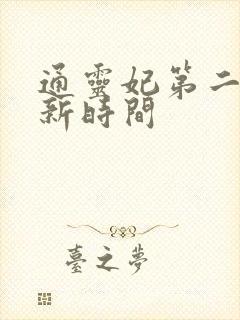 通靈妃第二
新時間
臺之夢